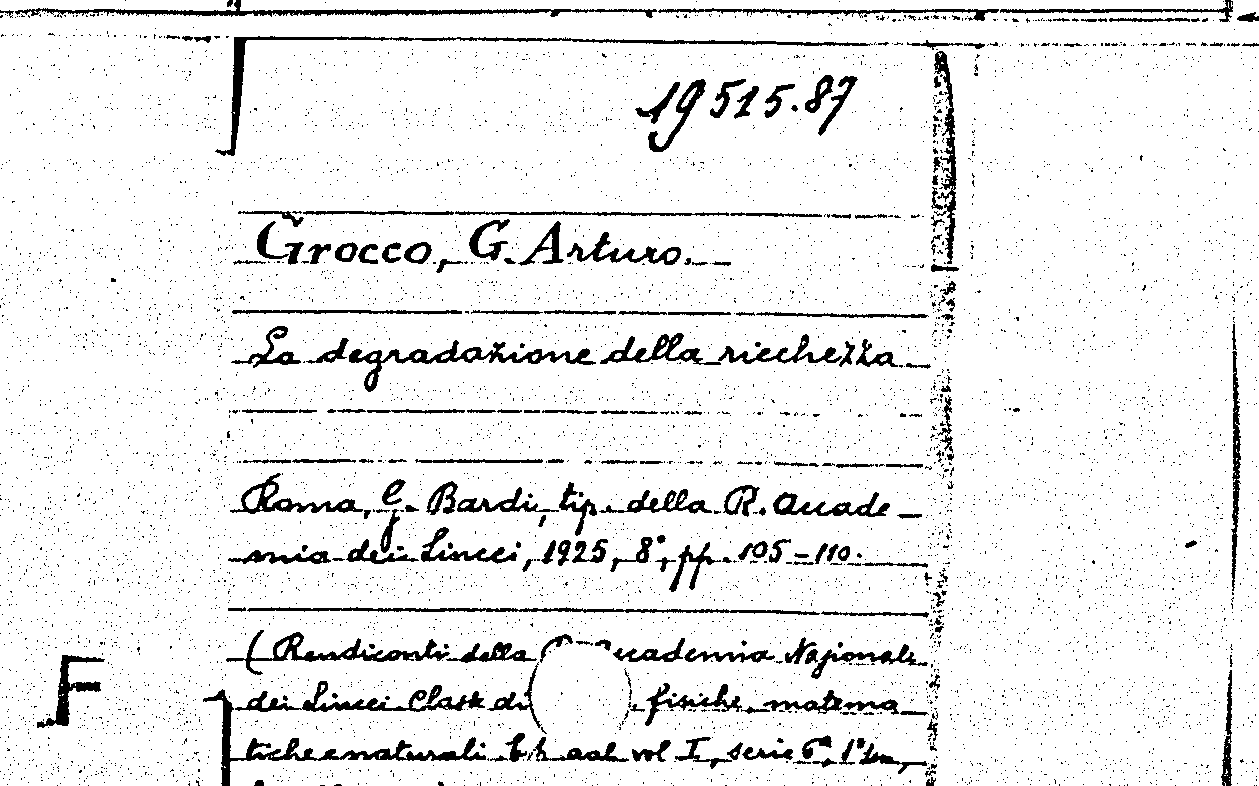 19515.87
Grocco, G. Arturo.
La degradazione della ricchezza.
Roma, G. Bardi, tip. della R. Accade-
mia dei Lincei, 1925, 8°, pp. 105-110.
(Rendiconti della Accademia Nazionale
dei Lincei Classe di fisiche, matema
tiche e naturali vol I, serie 6ª, 1° Sem,